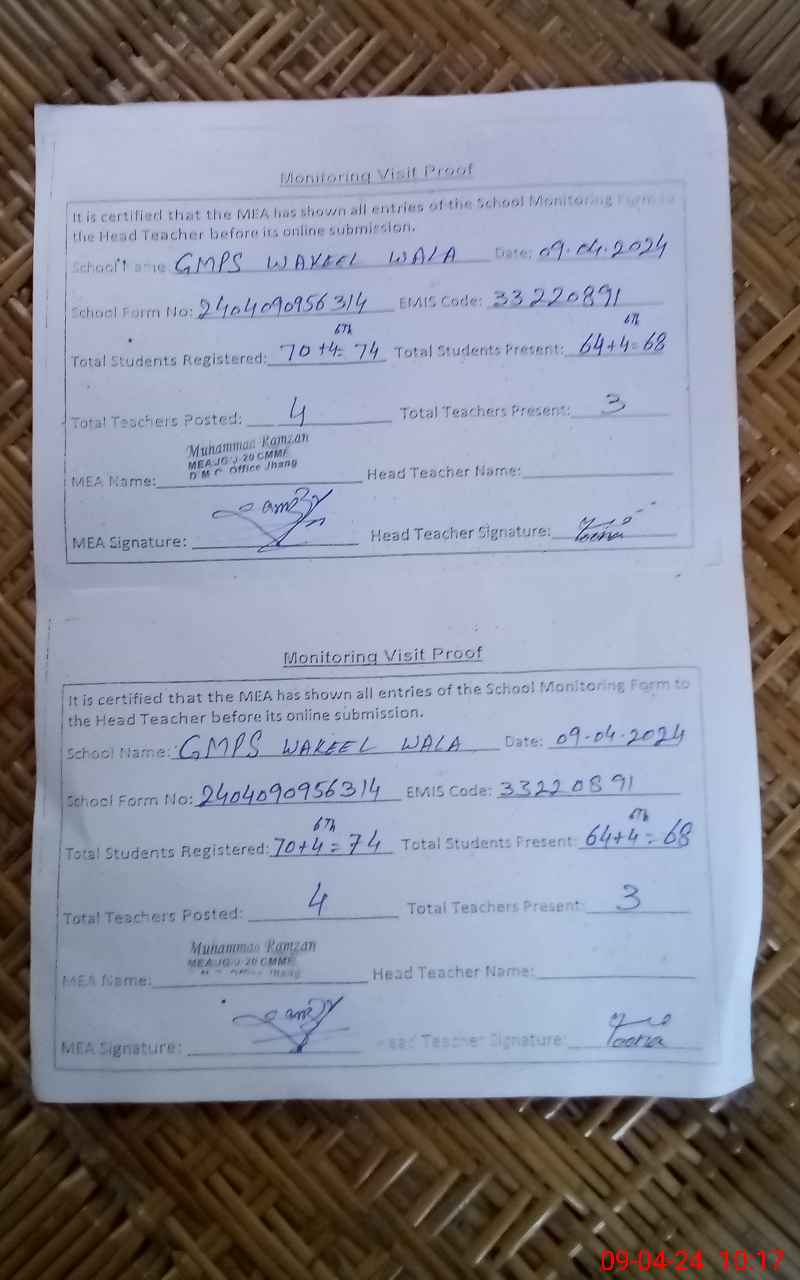 Monitoring Visit Proof
It is certified that the MEA has shown all entries of the School Monitoring Form to
the Head Teacher before its online submission.
School Name GMPS WAKEEL WALA Date: 09.04.2024
School Form No: 2404090956314 EMIS Code: 33220891
6th 6th
Total Students Registered: 70+4= 74 Total Students Present: 64+4=68
Total Teachers Posted: 4 Total Teachers Present: 3
Muhammad Ramzan
CMMF
D M C Office Jhang
MEA Name: Head Teacher Name:
MEA Signature: Head Teacher Signature:
Monitoring Visit Proof
It is certified that the MEA has shown all entries of the School Monitoring Form to
the Head Teacher before its online submission.
School Name: GMPS WAKEEL WALA Date: 09-04-2024
School Form No: 2404090956314 EMIS Code: 33220891
6Th 6Th
Total Students Registered: 70+4=74 Total Students Present: 64+4=68
Total Teachers Posted: 4 Total Teachers Present: 3
Muhammad Ramzan
CMMF
Office Jhang
MEA Name: Head Teacher Name:
MEA Signature: Head Teacher Signature:
09-04-24 10:17